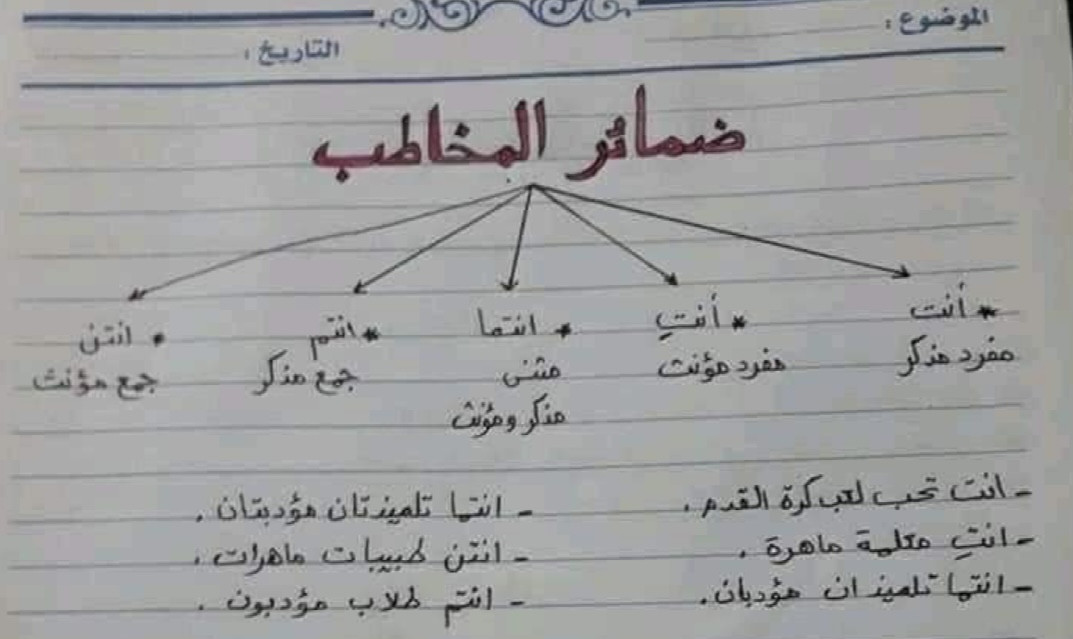 الموضوع :
التاريخ :
ضمائر المخاطب
* أنت * أنتِ * انتما * انتم * انتن
مفرد مذكر مفرد مؤنث مثنى جمع مذكر جمع مؤنث
مذكر ومؤنث
- انت تحب لعب كرة القدم . - انتما تلميذتان مؤدبتان .
- انتِ معلمة ماهرة . - انتن طبيبات ماهرات .
- انتما تلميذان مؤدبان . - انتم طلاب مؤدبون .